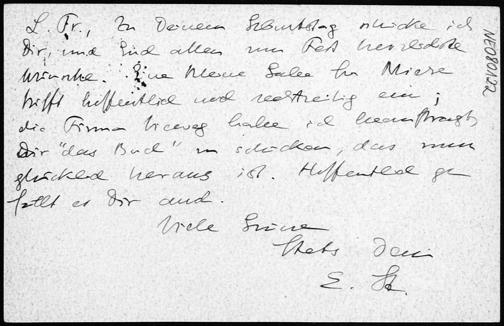 L. Fr., zu Deinem Geburtstag schicke ich
Dir, und Euch allen zum Fest herzlichste
Wünsche. Eine kleine Gabe für Mieze
trifft hoffentlich noch rechtzeitig ein;
die Firma Vieweg habe ich beauftragt,
Dir "das Buch" zu schicken, das nun
glücklich heraus ist. Hoffentlich ge
fällt es Dir auch.
Viele Grüsse
Stets Dein
E. St.
NE080122